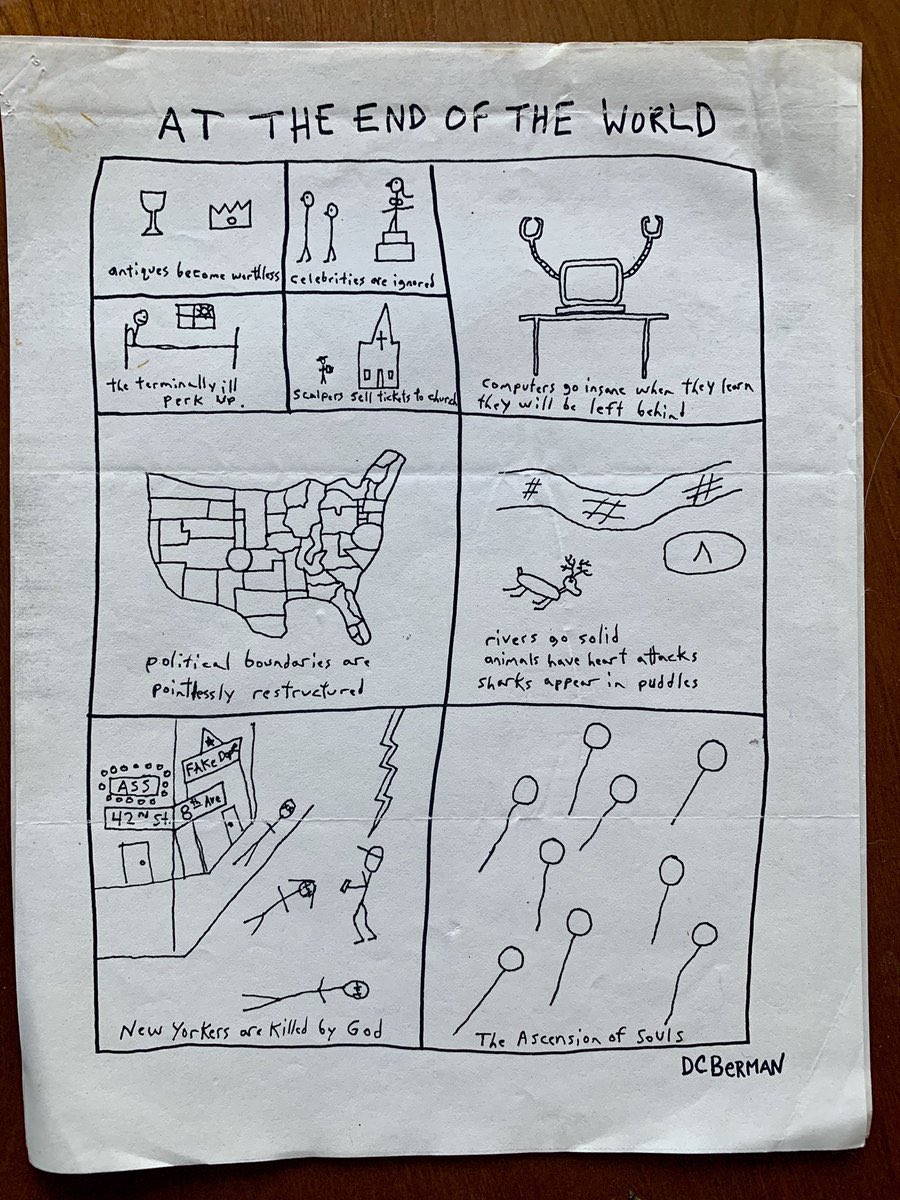 AT THE END OF THE WORLD
antiques become worthless
celebrities are ignored
the terminally ill
perk up.
scalpers sell tickets to church
computers go insane when they learn
they will be left behind
political boundaries are
pointlessly restructured
rivers go solid
animals have heart attacks
sharks appear in puddles
ASS
42ND St.
FAKE
8th Ave
New Yorkers are killed by God
The Ascension of Souls
DCBERMAN